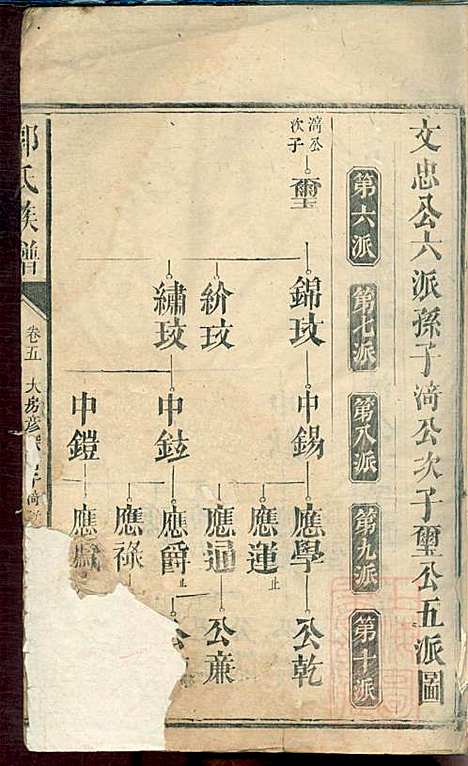 文忠公六派孫子渮公次子璽公五派圖
第六派
第七派
第八派
第九派
第十派
渮公次子
璽
錦玟
紒玟
繡玟
中錫
中鉉
中鎧
應學
應運
止
應通
應爵
止
應祿
應
公乾
公廉
公
氏族譜
卷五
大房彦